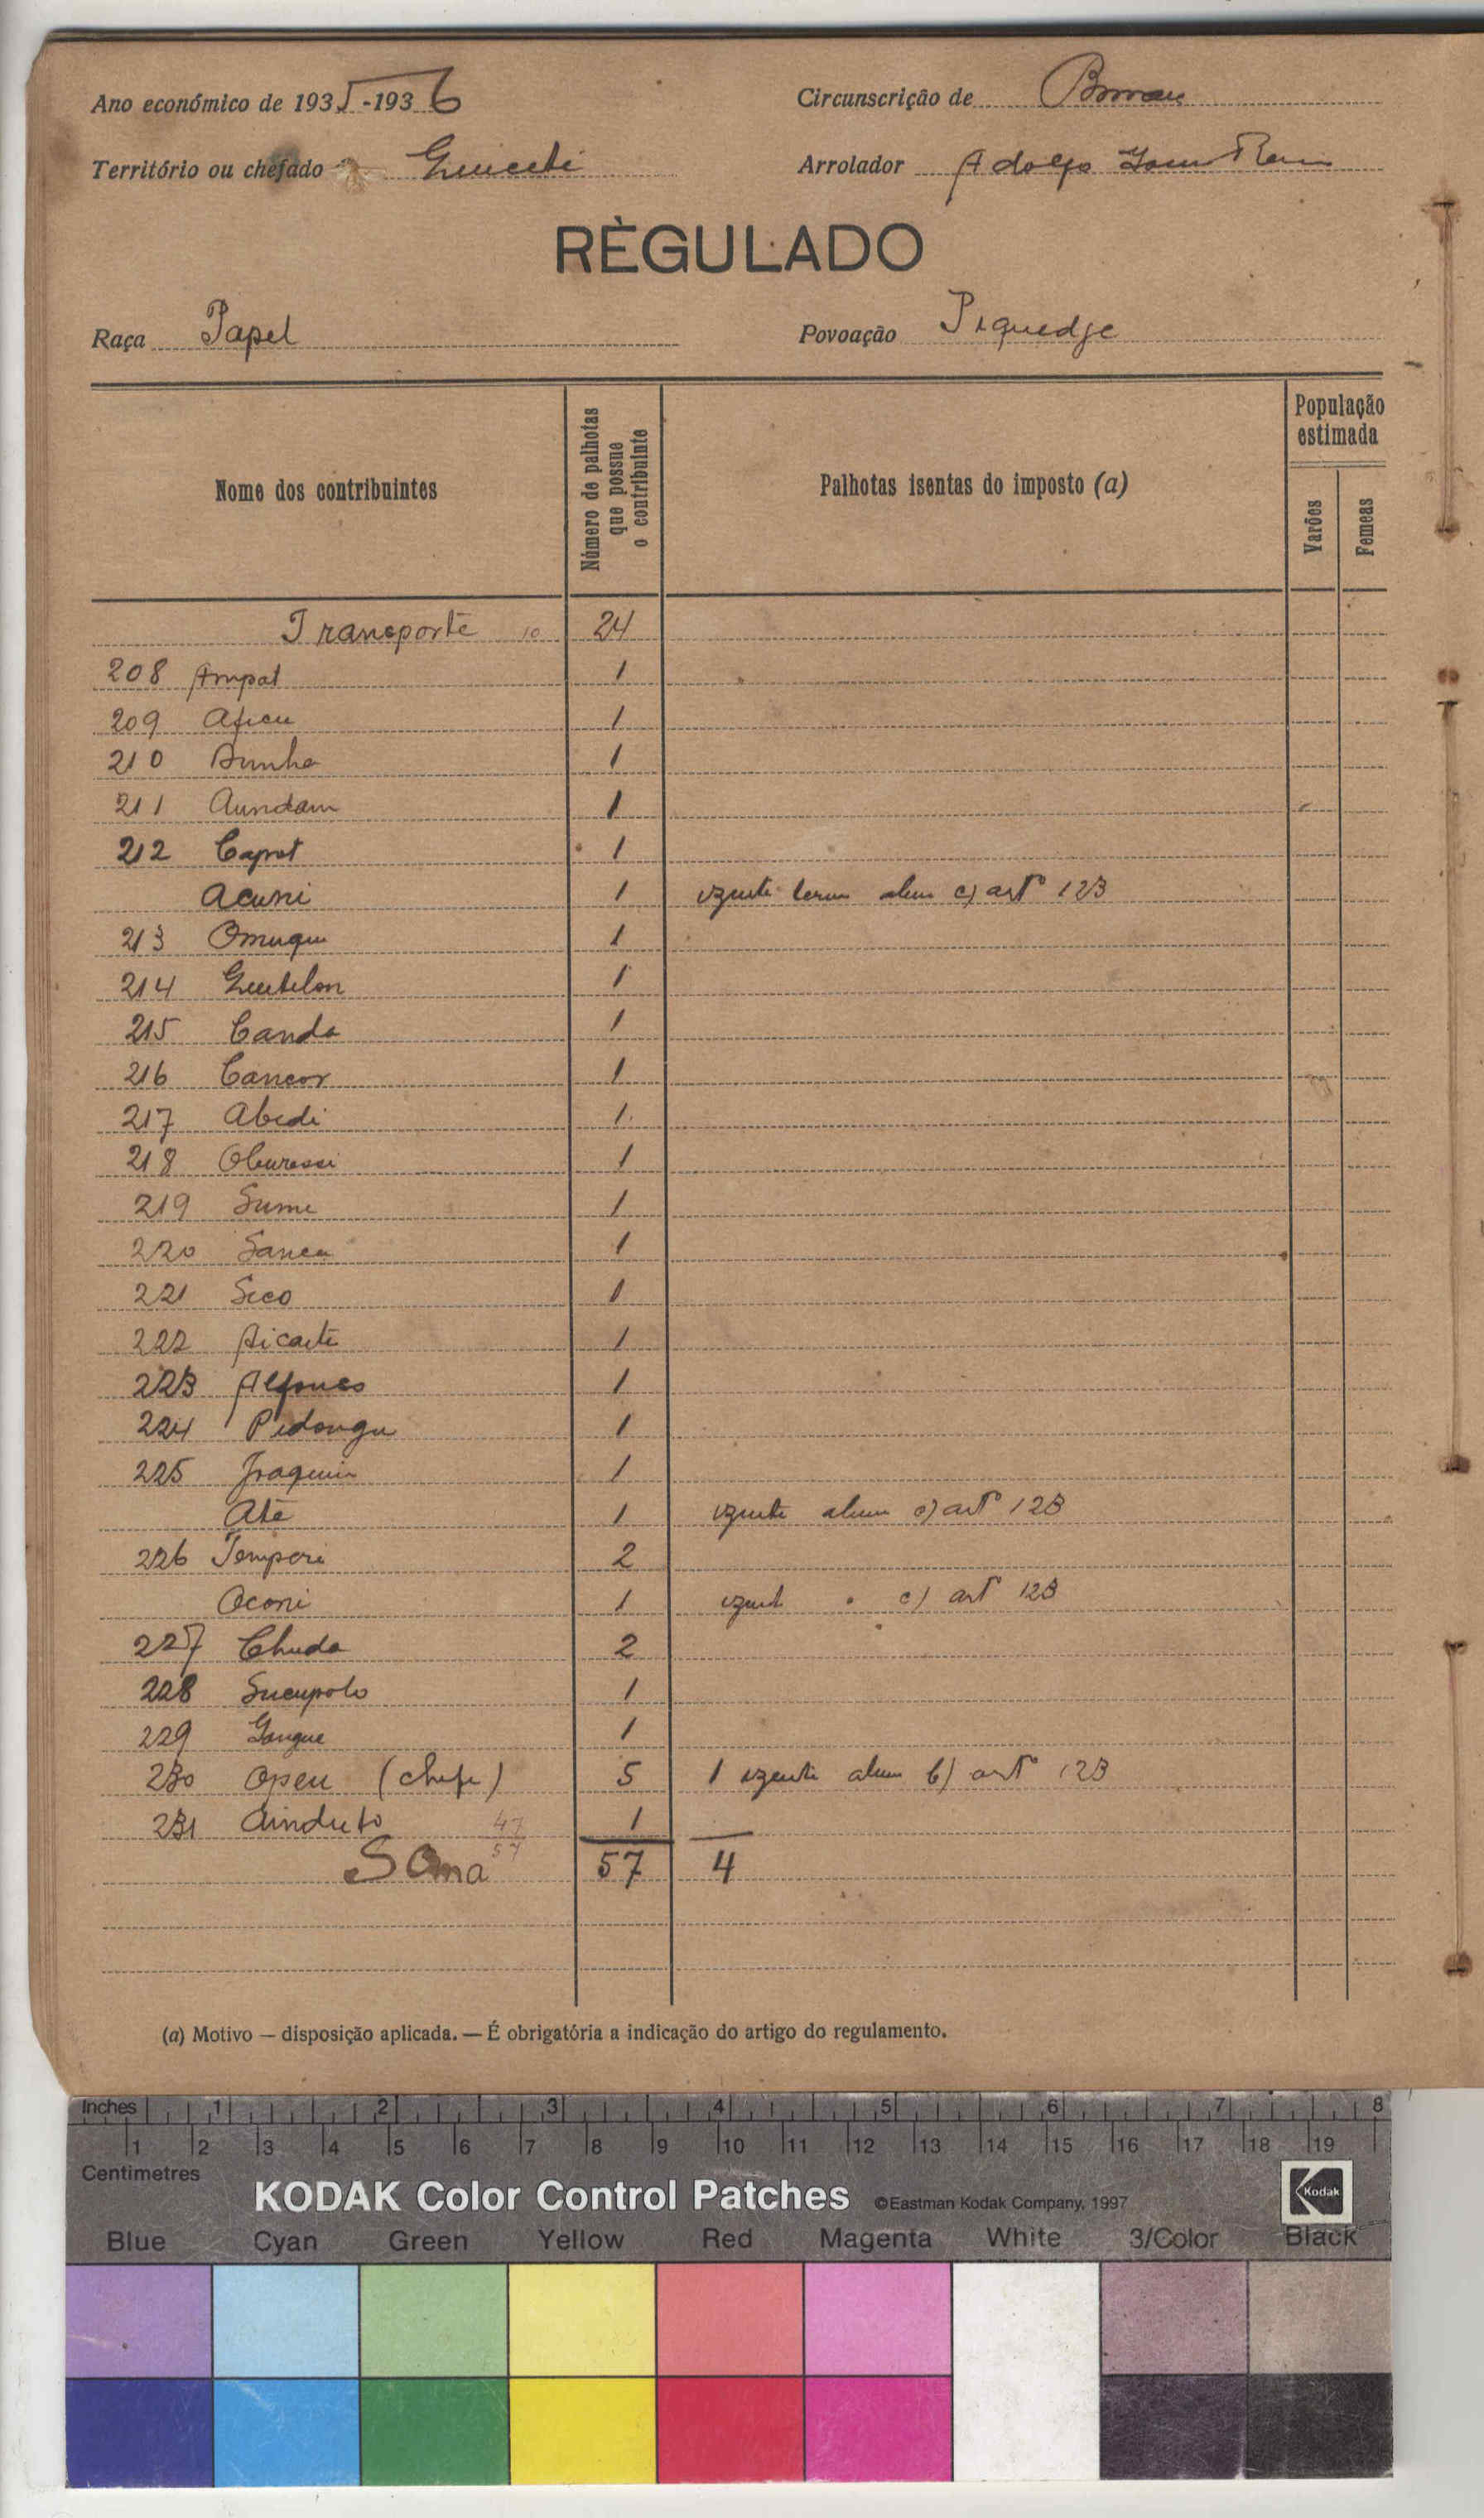 Ano económico de 1935-1936
Circunscrição de
Território ou chefado
Arrolador Adolfo
RÈGULADO
Raça Papel
Povoação Piquedge
Nome dos contribuintes
Número de palhotas que possue o contribuinte
Palhotas isentas do imposto (a)
População estimada
Varões
Femeas
Transporte 10 24
208 Ampat 1
209 1
210 1
211 Aundam 1
212 Capot 1
Acuni 1 c) artº 123
213 1
214 1
215 Canda 1
216 Cancor 1
217 Abedi 1
218 1
219 Sume 1
220 Sanca 1
221 Sico 1
222 Aicaite 1
223 1
224 Pidongu 1
225 Joaquim 1
Até 1 c) artº 123
226 Temperi 2
Oconi 1 c) artº 123
227 Chuda 2
228 Sucupolo 1
229 1
230 Opeu (chefe) 5 1 b) artº 123
231 1
47
57
Soma 57 4
(a) Motivo — disposição aplicada. — É obrigatória a indicação do artigo do regulamento.
Inches 1 2 3 4 5 6 7 8
1 2 3 4 5 6 7 8 9 10 11 12 13 14 15 16 17 18 19
Centimetres
KODAK Color Control Patches ©Eastman Kodak Company, 1997 Kodak
Blue Cyan Green Yellow Red Magenta White 3/Color Black